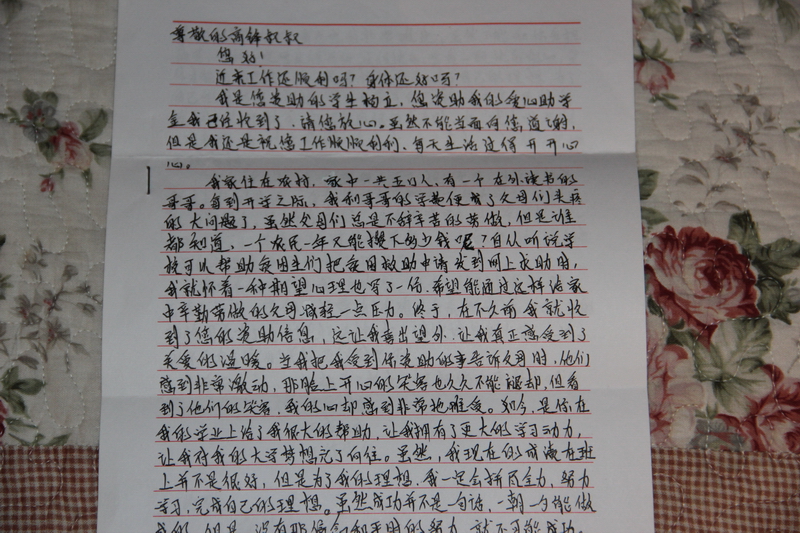 尊敬的高锋叔叔
您好!
近来工作还顺利吗?身体还好吗?
我是您资助的学生 您资助我的爱心助学
金我已经收到了,请您放心。虽然不能当面向您道谢,
但是我还是祝您工作顺顺利利,每天生活过得开开心
心。
我家住在农村,家中一共五口人,有一个在外读书的
哥哥。每到开学之际,我和哥哥的学费便成了父母们头疼
的大问题了,虽然父母们总是不辞辛苦的劳做,但是谁
都知道,一个农民一年又能攒下多少钱呢?自从听说学
校可以帮助贫困生们把贫困救助申请发到网上求助时,
我就怀着一种期望心理也写了一份,希望能通过这样给家
中辛勤劳做的父母减轻一点压力。终于,在不久前我就收
到了您的资助信息,这让我喜出望外,让我真正感受到了
关爱的温暖。当我把我受到你资助的事告诉父母时,他们
感到非常激动,那脸上开心的笑容也久久不能 却,但看
到了他们的笑容,我的心却感到非常地难受。如今,是你在
我的学业上给了我很大的帮助,让我拥有了更大的学习动力,
让我对我的大学梦想充了向往。虽然,我现在的成绩在班
上并不是很好,但是为了我的理想,我一定会拼尽全力,努力
学习,完成自己的理想。虽然成功并不是一句话,一朝一夕能做
成的,但是,没有那 的努力,就不可能成功。